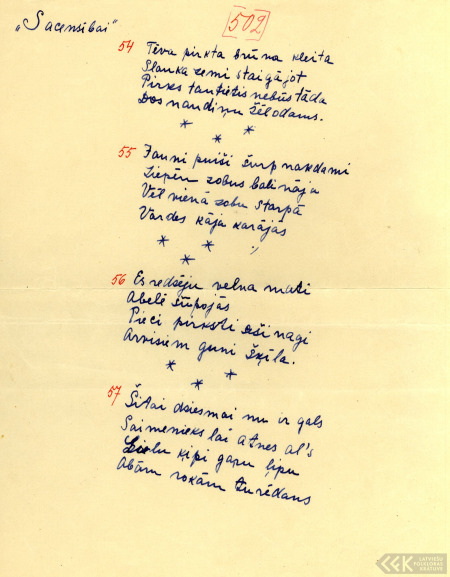 „Sacensībai"
502
54 Tēva pirkta brūna kleita
Slauka zemi staigājot
Pirks tautietis nebūs tāda
Dos naudiņu žēlodams.
* * *
55 Jauni puiši šurp nākdami
Liepu zobus balināja
Vēl vienā zobu starpā
Vardes kāja karājās
* * *
56 Es redzēju velna māti
Ābelē šūpojās
Pieci pirksti seši nagi
Arvisiem guni šķīla.
* * *
57 Šitai dziesmai nu ir gals
Saimenieks lai atnes al's
Lielu ķipi garu lipu
Abām rokām turēdams
LATVIEŠU
FOLKLORAS
KRĀTUVE